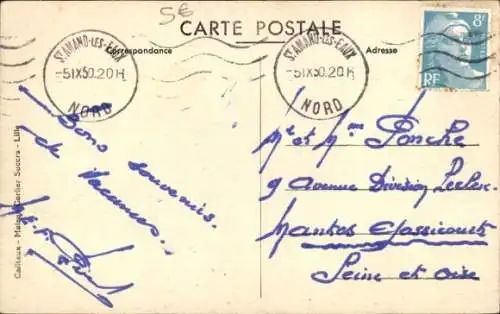 5€
CARTE POSTALE
Correspondance
Adresse
ST AMAND-LES-EAUX
-5IX50.20H
NORD
ST AMAND-LES-EAUX
-5IX50.20H
NORD
8F
RF
Bons souvenirs
de Vacances.
Mr et Mme Ponche
9 Avenue Division Leclerc
Mantes Gassicourt
Seine et Oise
Cailteux - Carlier Succrs - Lille